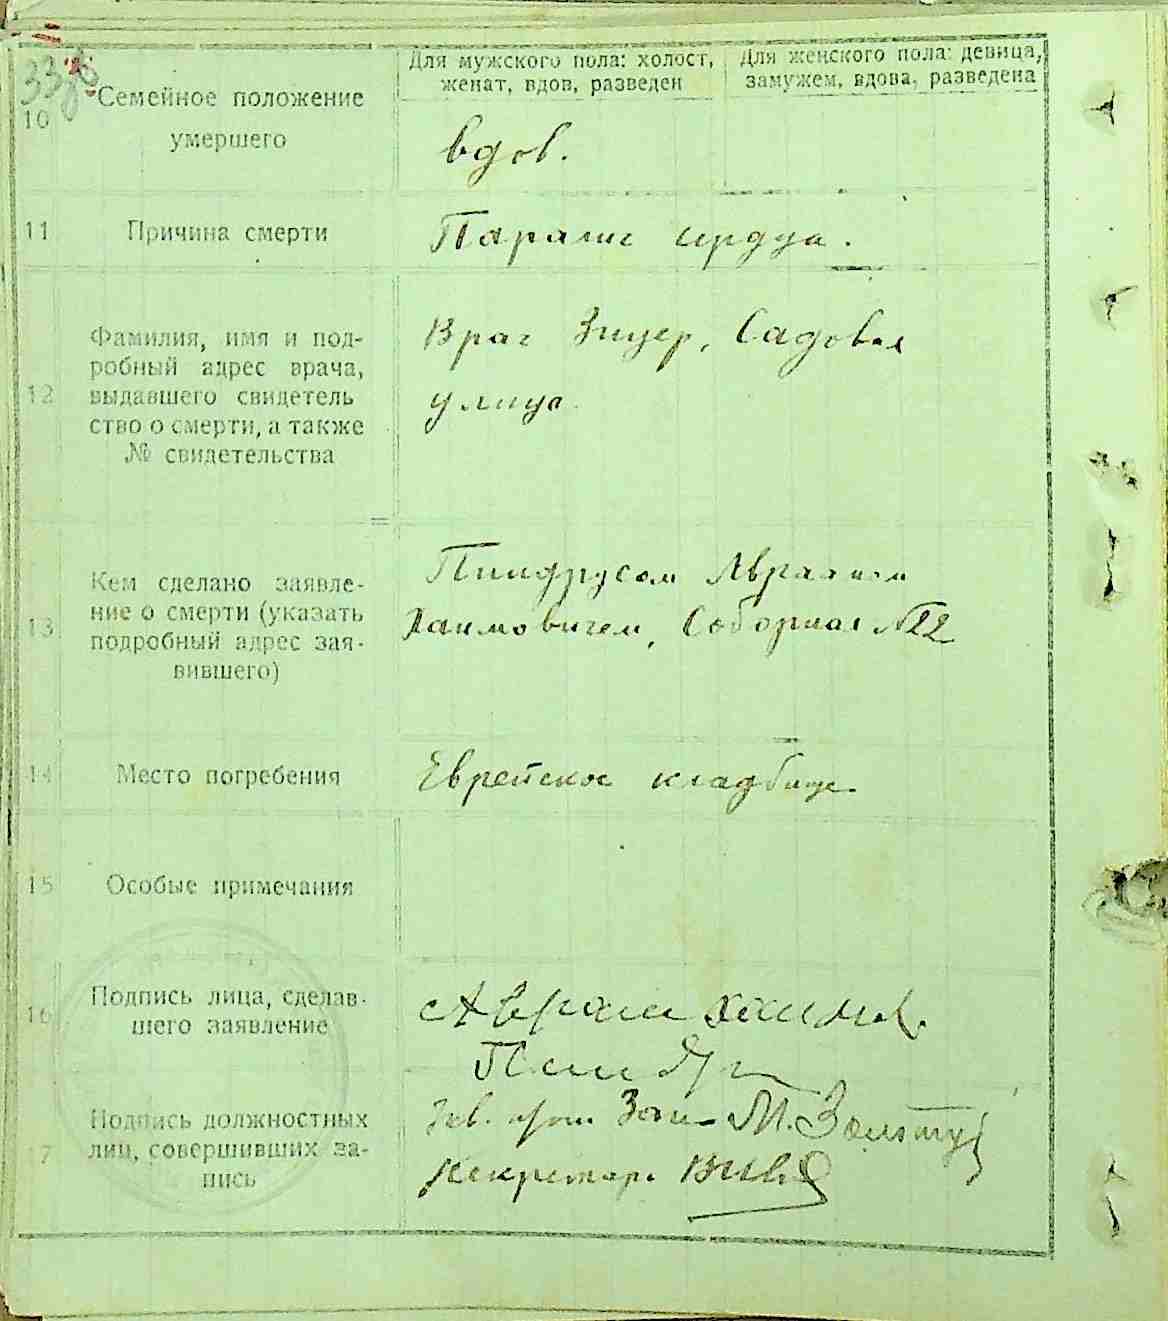 Для мужского пола: холост, женат, вдов, разведен
Для женского пола: девица, замужем, вдова, разведена
10
Семейное положение
умершего
вдов.
11
Причина смерти
Паралис сердца.
12
Фамилия, имя и под-
робный адрес врача,
выдавшего свидетель
ство о смерти, а также
№ свидетельства
Врач Зицер, Садовая
улица
13
Кем сделано заявле-
ние о смерти (указать
подробный адрес зая-
вившего)
Пиндрусом Авраамом
Хаимовичем, Соборная №22
14
Место погребения
Еврейское кладбище.
15
Особые примечания
16
Подпись лица, сделав-
шего заявление
Аврам Хаимов.
17
Подпись должностных
лиц, совершивших за-
пись
Зав. М.
Секретарь